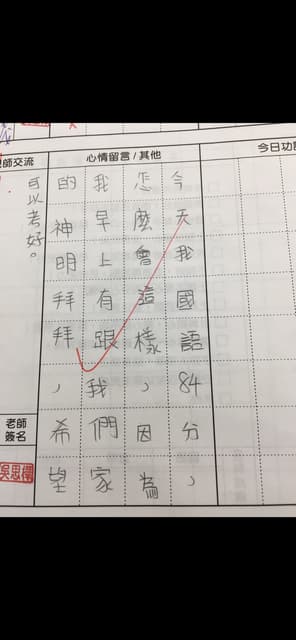 師交流
心情留言/其他
今日功
今天我國語84分，
怎麼會這樣，因為
我早上有跟我們家
的神明拜拜，希望
可以考好。
老師
簽名